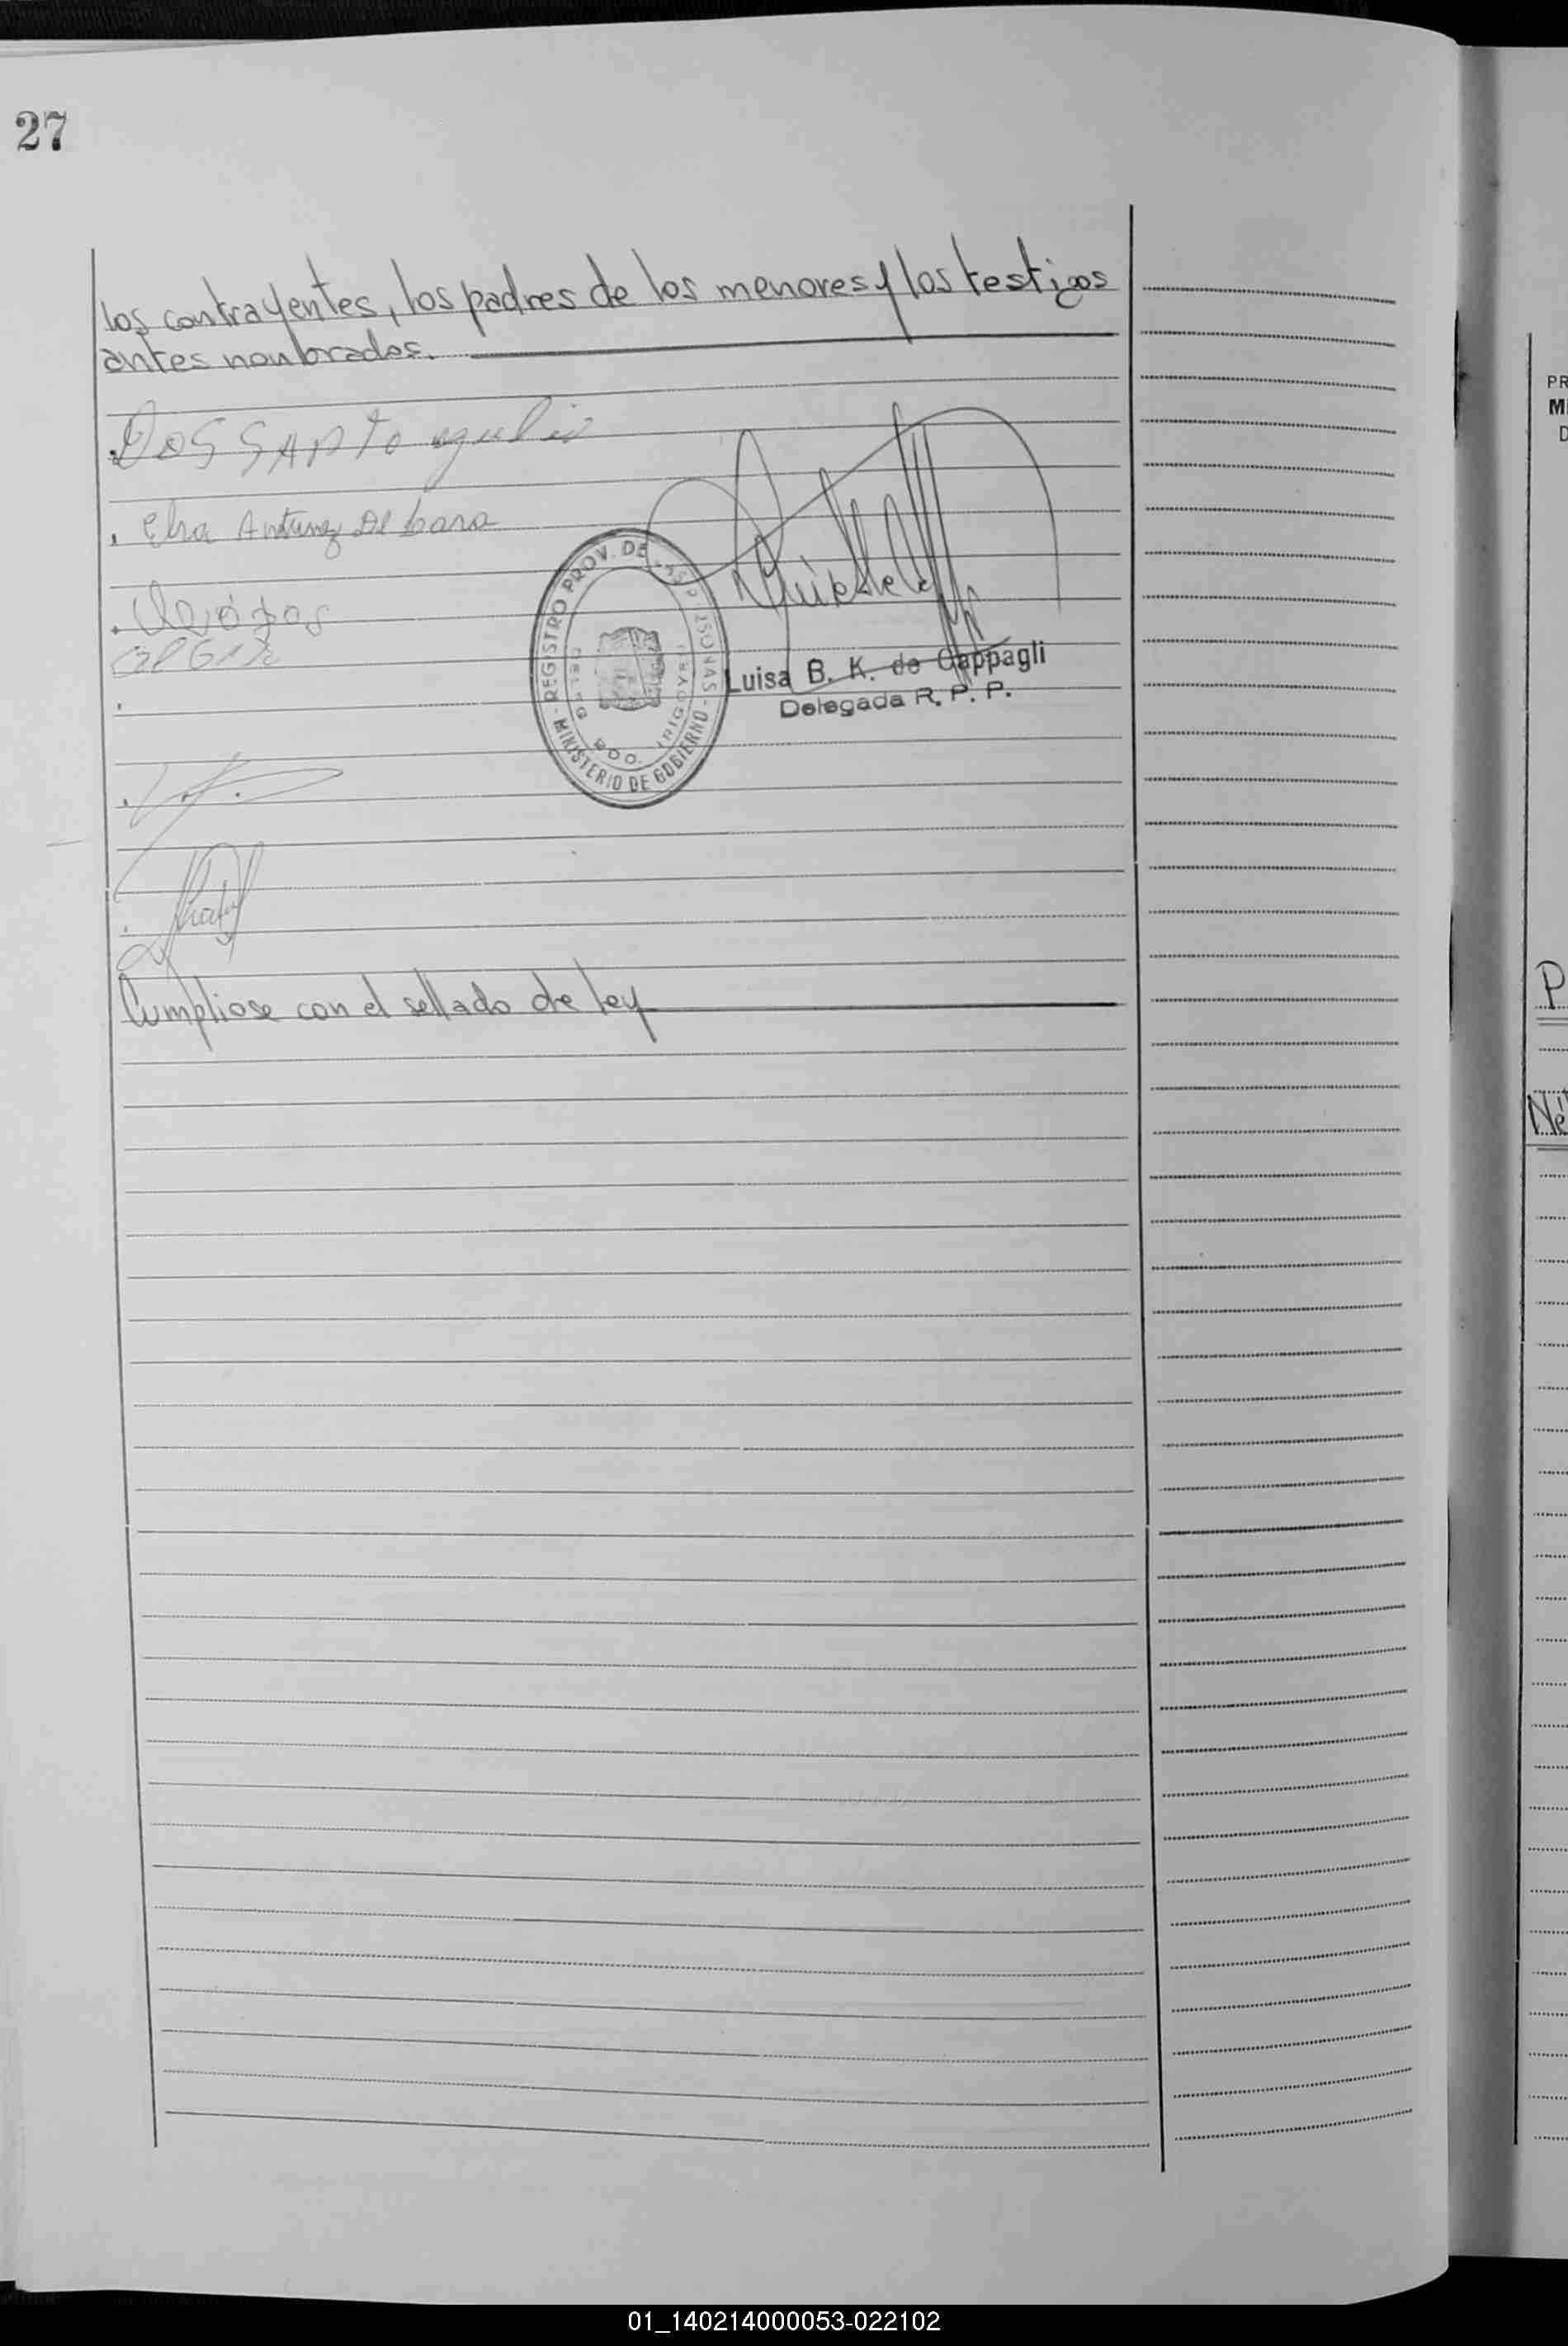 27
los contrayentes, los padres de los menores y los testigos
antes nombrados.
DOS SANTO
. Elsa Antunez De Lara
REGISTRO PROV. DE LAS PERSONAS - MINISTERIO DE GOBIERNO -
BDO. IRIGOYEN
Luisa B. K. de Cappagli
Delegada R. P. P.
Cumpliose con el sellado de ley
PR
M
D
P
Ne
01_140214000053-022102